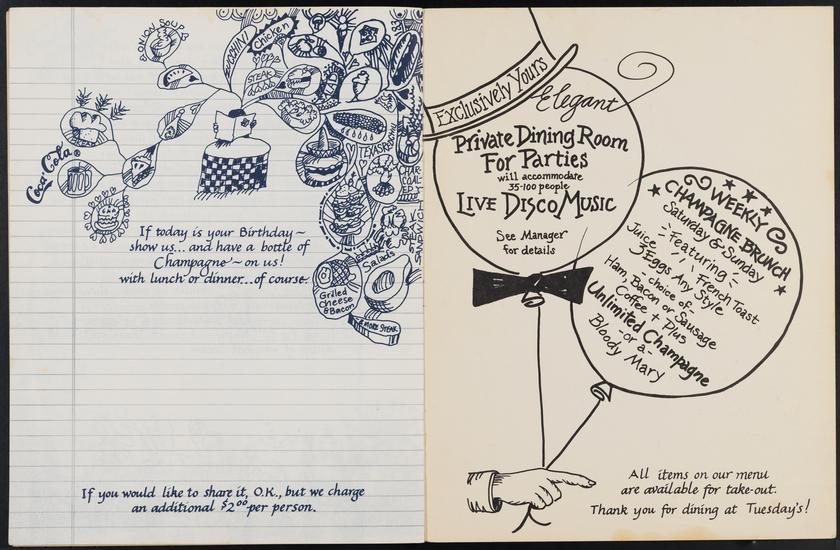 ONION SOUP
ZUCCHINI
Chicken
STEAK
SALADS
TEXASRIBS
Coca-Cola®
Grilled
Cheese
& Bacon
Salads
& MORE STEAK
If today is your Birthday~
show us... and have a bottle of
Champagne ~ on us!
with lunch or dinner...of course.
If you would like to share it, O.K., but we charge
an additional $2.00 per person.
EXCLUSIVELY YOURS
Elegant
Private Dining Room
For Parties
will accommodate
35-100 people
LIVE DISCO MUSIC
See Manager
for details
WEEKLY
CHAMPAGNE BRUNCH
Saturday & Sunday
-Featuring-
Juice French Toast
3 Eggs Any Style
choice of
Ham, Bacon or Sausage
Coffee + Plus
Unlimited Champagne
-or a-
Bloody Mary
All items on our menu
are available for take-out.
Thank you for dining at Tuesday's!